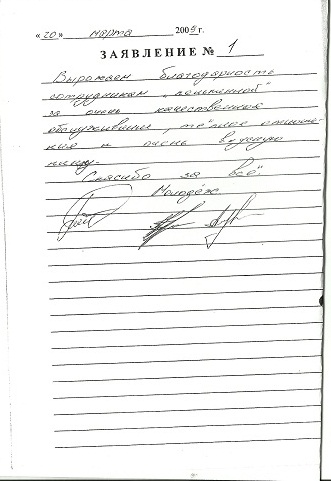 « 20 » марта 2005 г.
ЗАЯВЛЕНИЕ № 1
Выражаем благодарность
сотрудникам
за очень качественное
обслуживание, тёплое отноше-
ния и очень вкусную
пиццу.
Спасибо за всё.
Молодёж